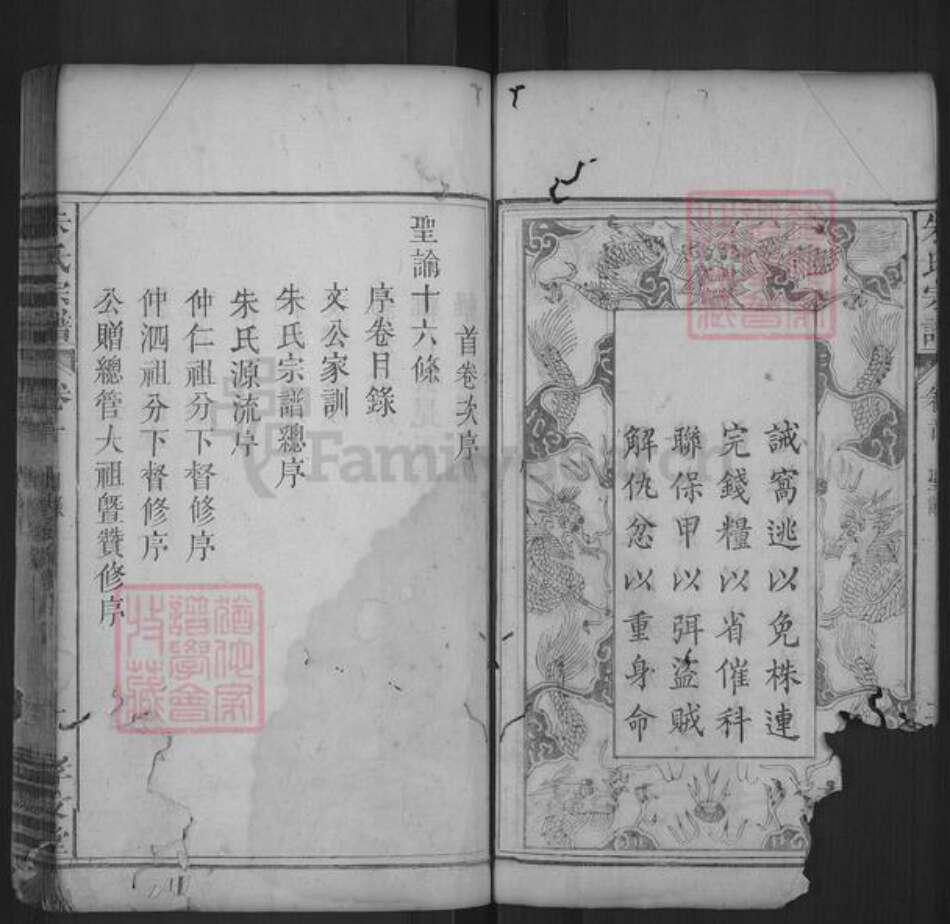 誡窩逃以免株連
完錢糧以省催科
聯保甲以弭盜賊
解仇忿以重身命
朱氏宗譜
首卷次序
聖諭十六條
序卷目錄
文公家訓
朱氏宗譜總序
朱氏源流序
仲仁祖分下督修序
仲泗祖分下督修序
公贈總管大祖暨贊修序
朱氏宗譜
譜學會
收藏
FamilySearch